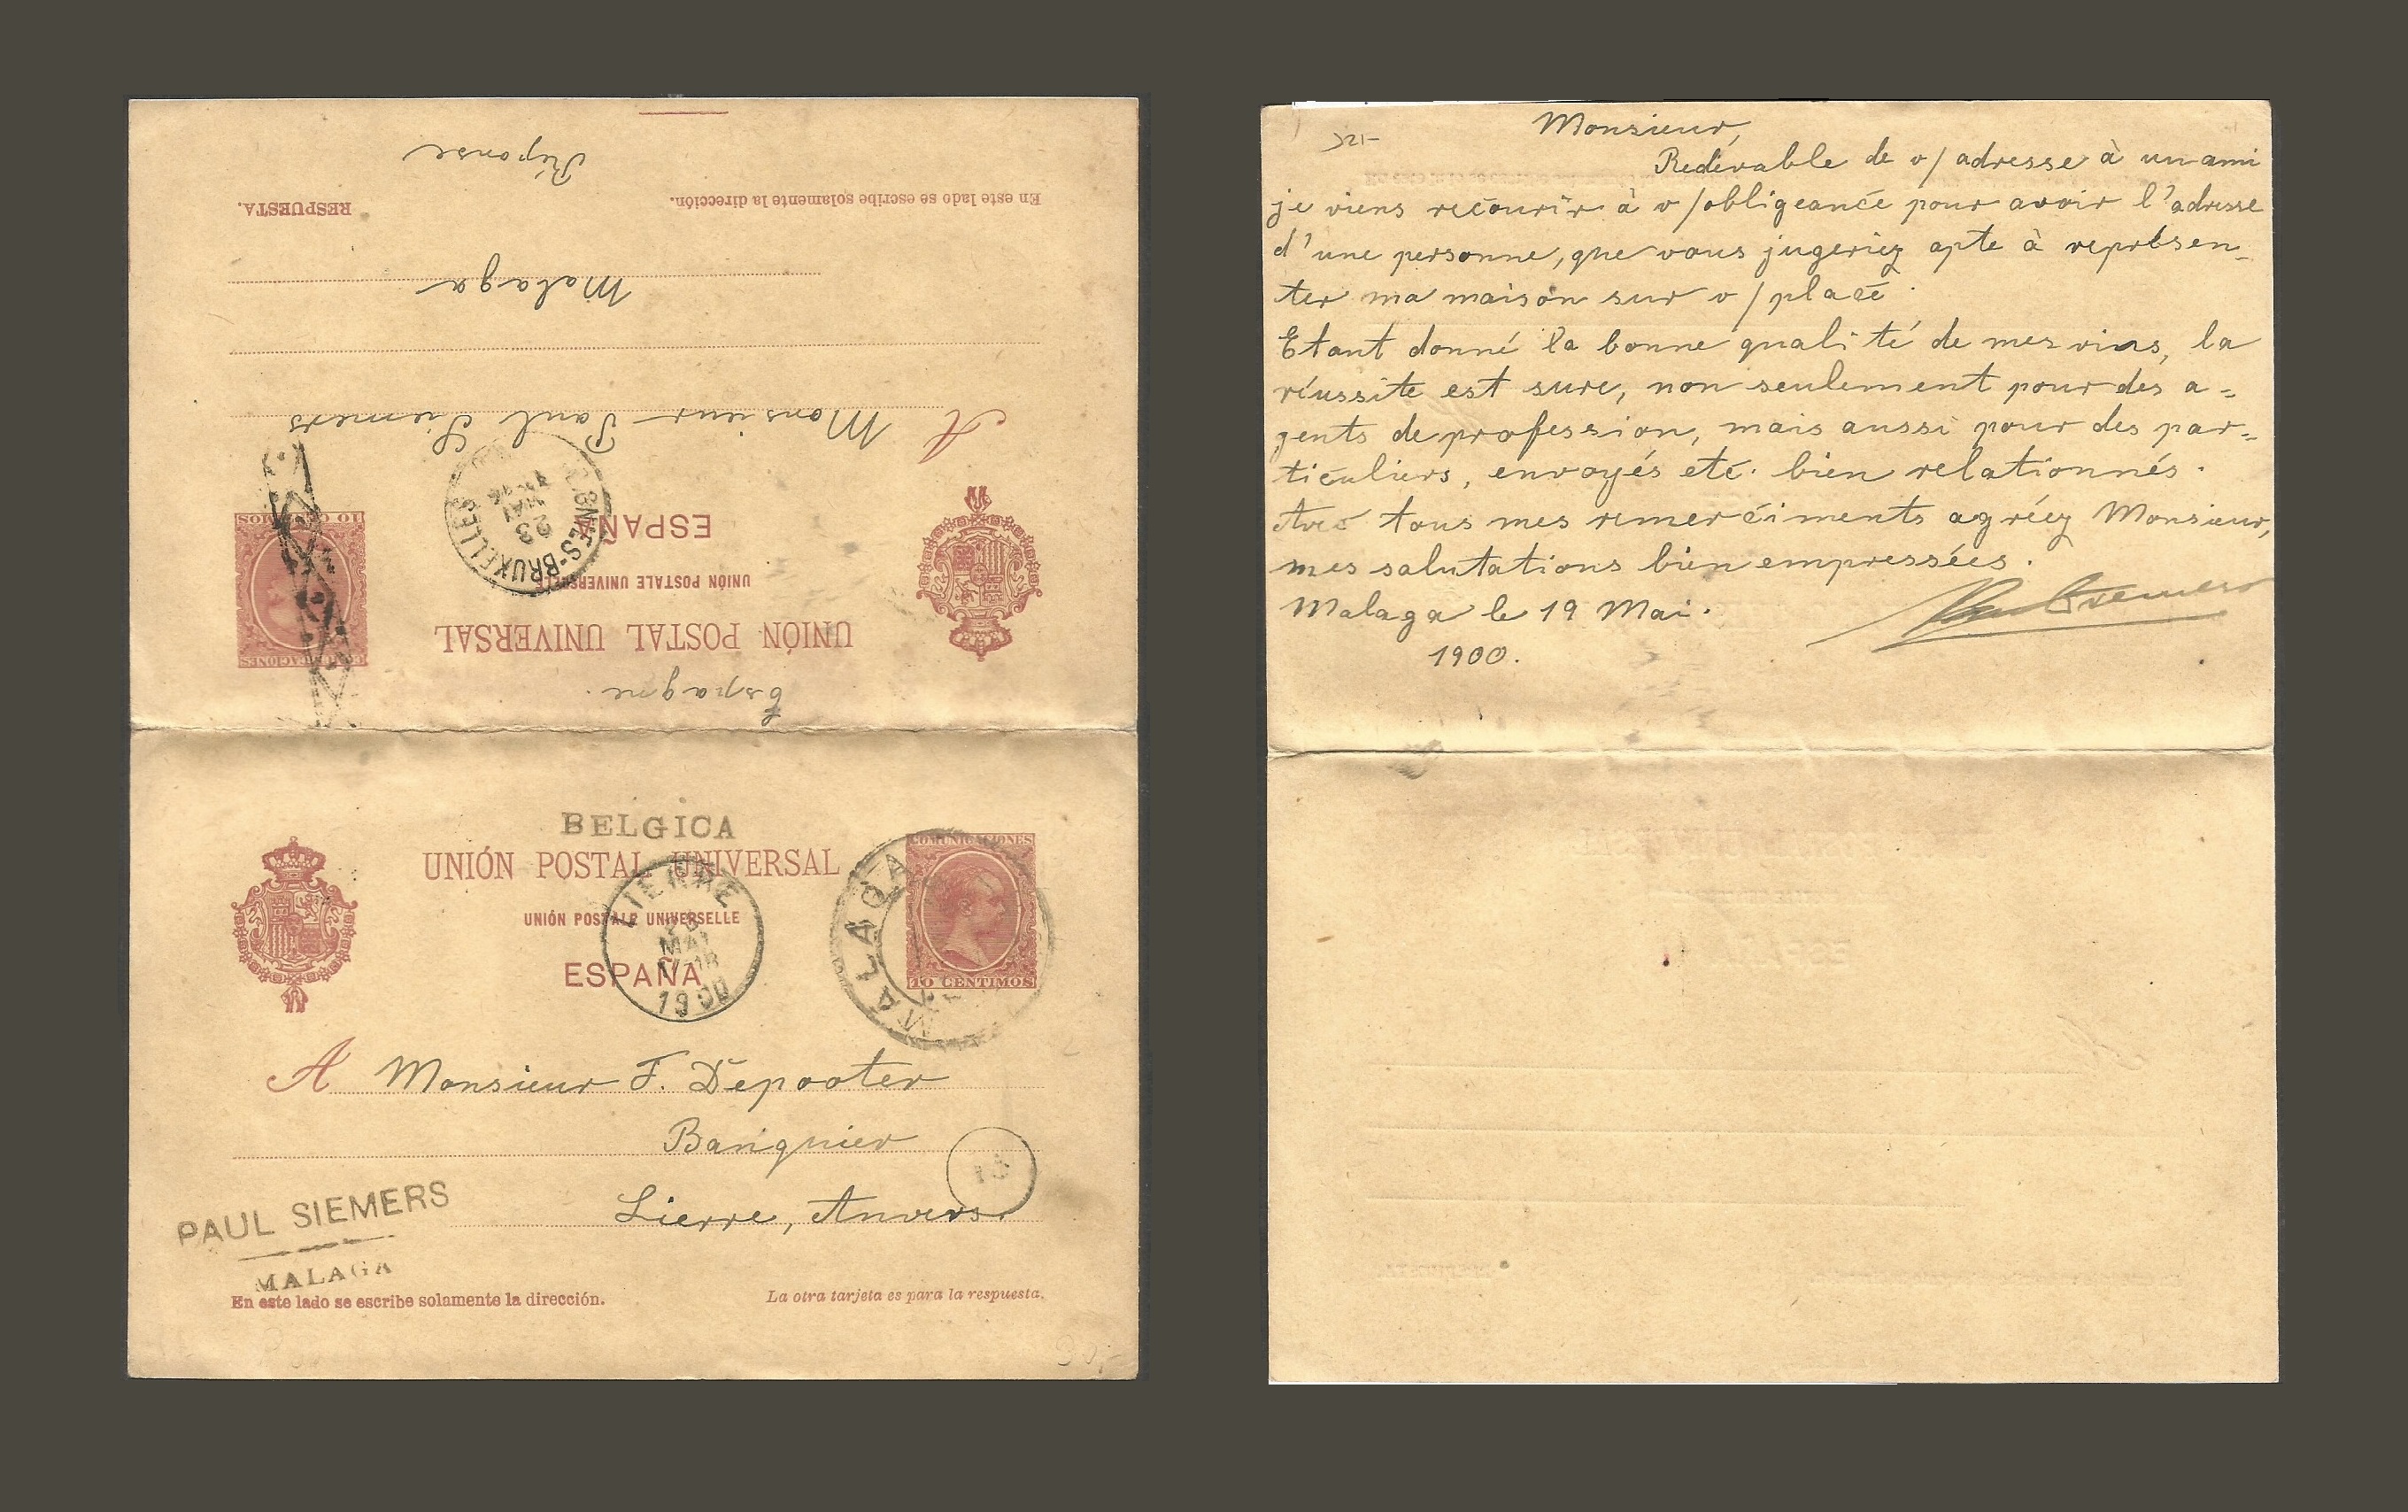 Réponse
En este lado se escribe solamente la dirección.
RESPUESTA.
Malaga
A Monsieur Paul Siemers
10 CENTIMOS
BRUXELLES
23
MAI
ESPAÑA
UNIÓN POSTALE UNIVERSELLE
UNIÓN POSTAL UNIVERSAL
COMUNICACIONES
Espagne.
BELGICA
UNIÓN POSTAL UNIVERSAL
UNIÓN POSTALE UNIVERSELLE
ESPAÑA
LIERRE
MAI
1900
MALAGA
COMUNICACIONES
10 CENTIMOS
A Monsieur F. Depooter
Banquier
Lierre, Anvers.
13
PAUL SIEMERS
MALAGA
En este lado se escribe solamente la dirección.
La otra tarjeta es para la respuesta.
Monsieur,
Redevable de v/ adresse à un ami
je viens recourir à v/obligeance pour avoir l'adresse
d'une personne, que vous jugeriez apte à représen-
ter ma maison sur v/place.
Etant donné la bonne qualité de mes vins, la
réussite est sure, non seulement pour des a-
gents de profession, mais aussi pour des par-
ticuliers, envoyés etc. bien relationnés.
Avec tous mes remerciments agréez Monsieur,
mes salutations bien empressées.
Malaga le 19 Mai.
1900.
Paul Siemers